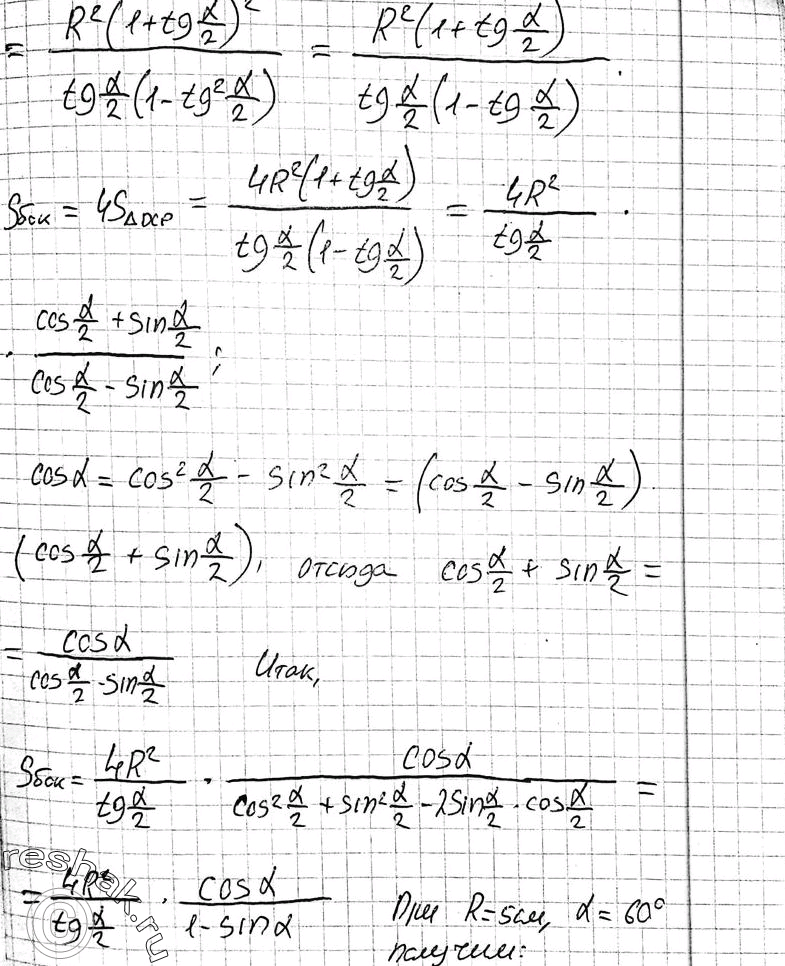 = R²(1+tg α/2)² / tg α/2 (1-tg² α/2) = R²(1+tg α/2) / tg α/2 (1-tg α/2).
Sбок = 4S△DCP = 4R²(1+tg α/2) / tg α/2 (1-tg α/2) = 4R² / tg α/2 ·
· cos α/2 + sin α/2 / cos α/2 - sin α/2 ;
cosα = cos² α/2 - sin² α/2 = (cos α/2 - sin α/2) ·
(cos α/2 + sin α/2), отсюда cos α/2 + sin α/2 =
= cosα / cos α/2 - sin α/2 Итак,
Sбок = 4R² / tg α/2 · cosα / cos² α/2 + sin² α/2 - 2sin α/2 · cos α/2 =
= 4R² / tg α/2 · cosα / 1-sinα При R=5см, α=60°
получим:
reshak.ru